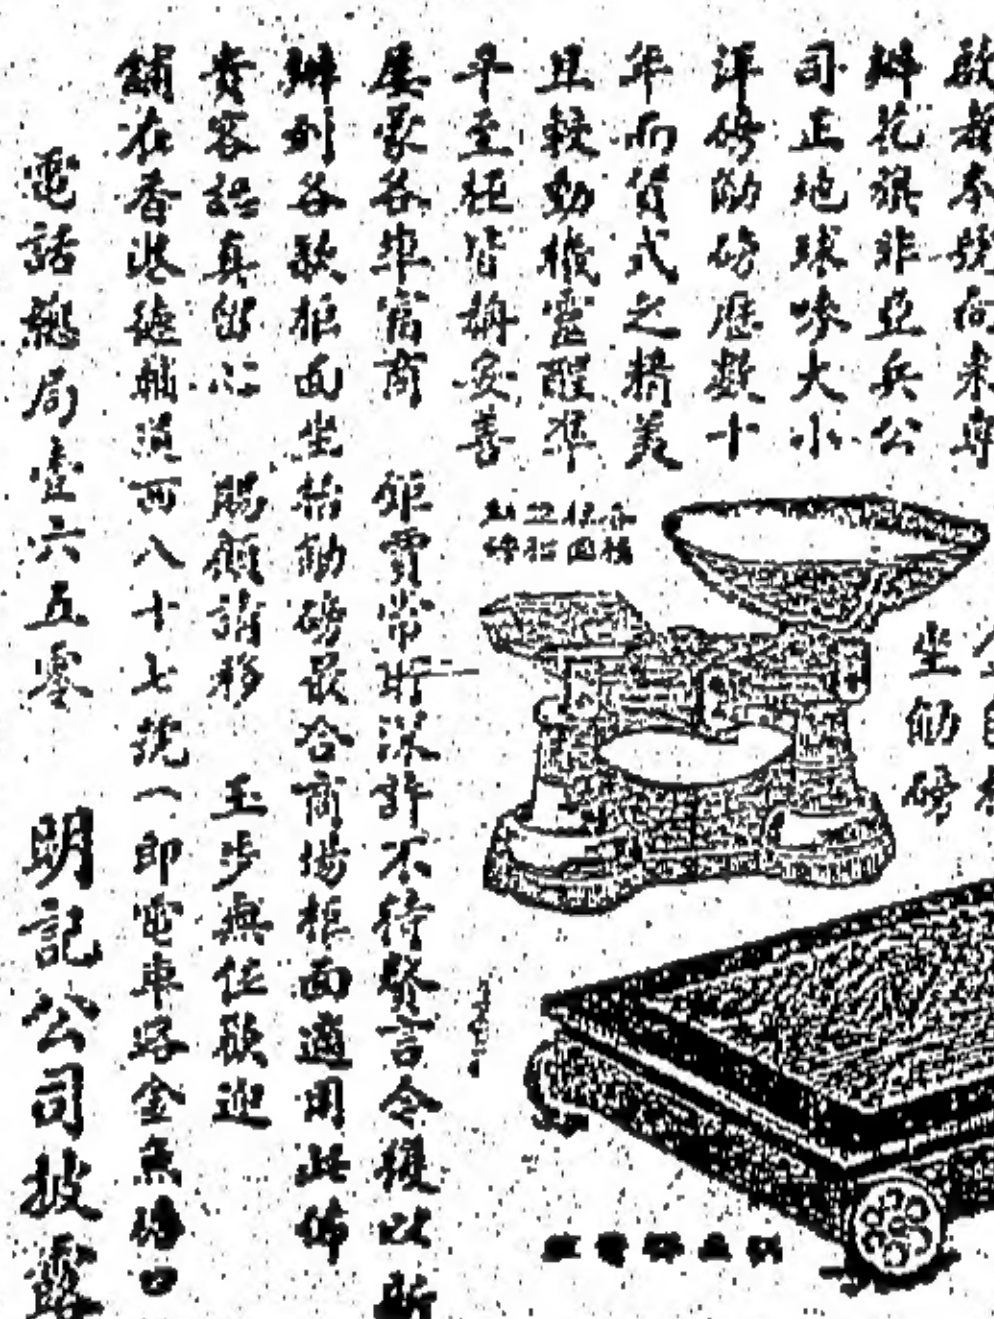 啟者本號向來專
辦花旗非亞兵公
司正地球嘜大小
洋磅泐磅歷數十
年而貨式之精美
且較動機靈醒準
平至極皆稱妥善
屢蒙各埠富商
鉅賈常時深許不待贅言今復以新
辦到各款柜面坐枱泐磅最合商場柜面適用此佈
貴客認真留心 賜顧請移 玉步無任歡迎
舖在香港德輔道西八十七號(即電車路金魚塘口
電話總局壹六五零 明記公司披露
坐泐磅